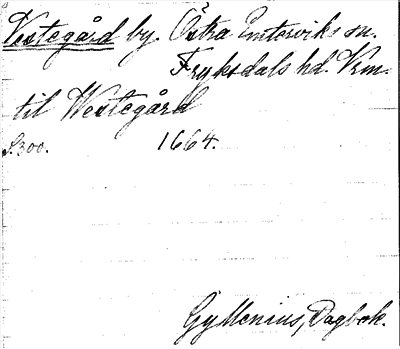 Vestegård by. Östra Emterviks sn.
Fryksdals hd. Vrm.
til Westegård
S. 300. 1664.
Gyllenius, Dagbok.